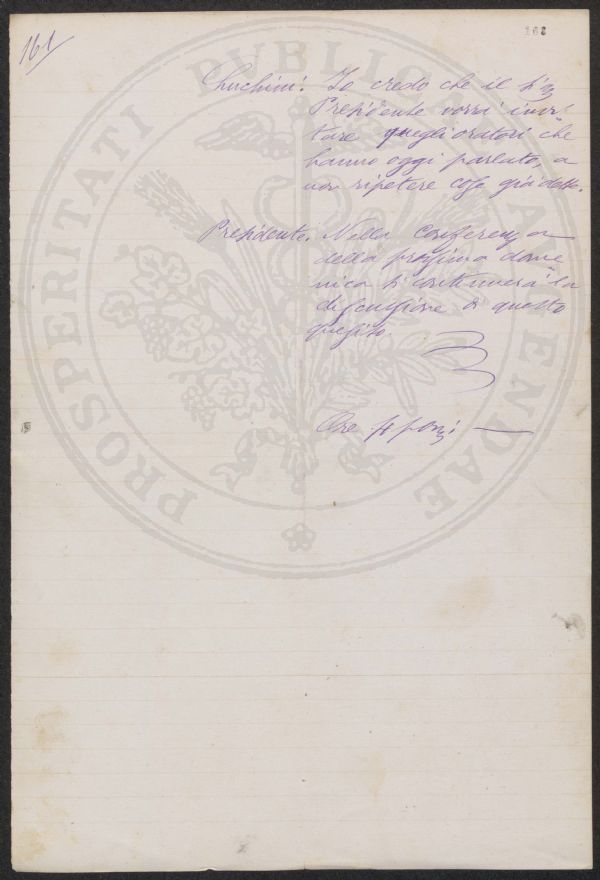 161
162
Chuchini. Io credo che il Sig
Presidente vorrà invi
tare quegli oratori che
hanno oggi parlato, a
non ripetere cose già dette.
Presidente. Nella conferenza
della prossima dome
nica si continuerà la
discussione di questo
quesito
Ore
PROSPERITATI PVBLICAE AVGENDAE